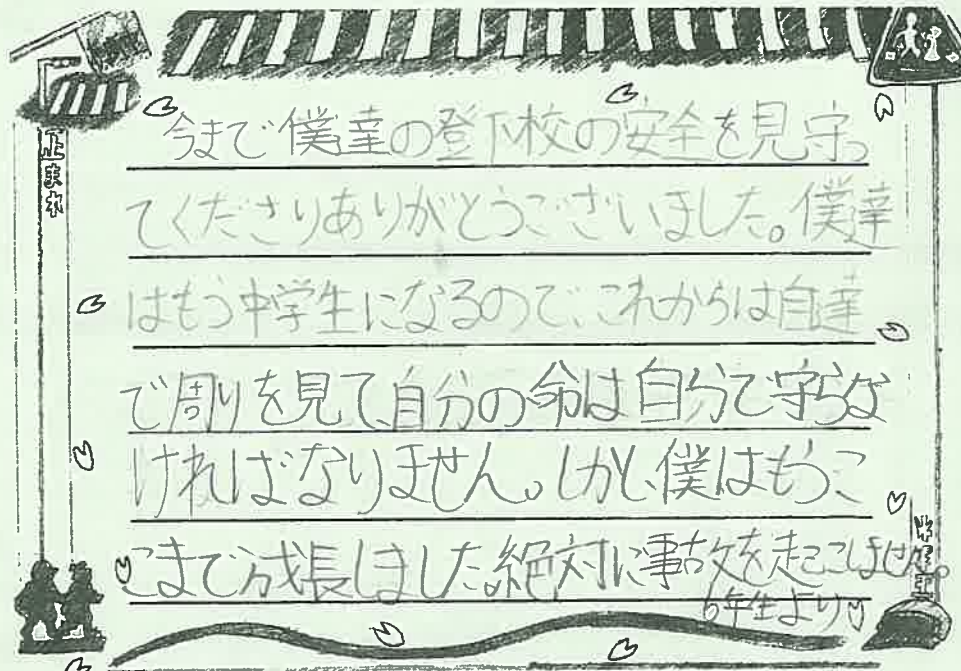 止まれ
今まで僕達の登下校の安全を見守っ
てくださりありがとうございました。僕達
はもう中学生になるので、これからは自達
で周りを見て、自分の命は自分で守らな
ければなりません。しかし、僕はもうこ
こまで成長しました。絶対に事故を起こしません。
6年生より